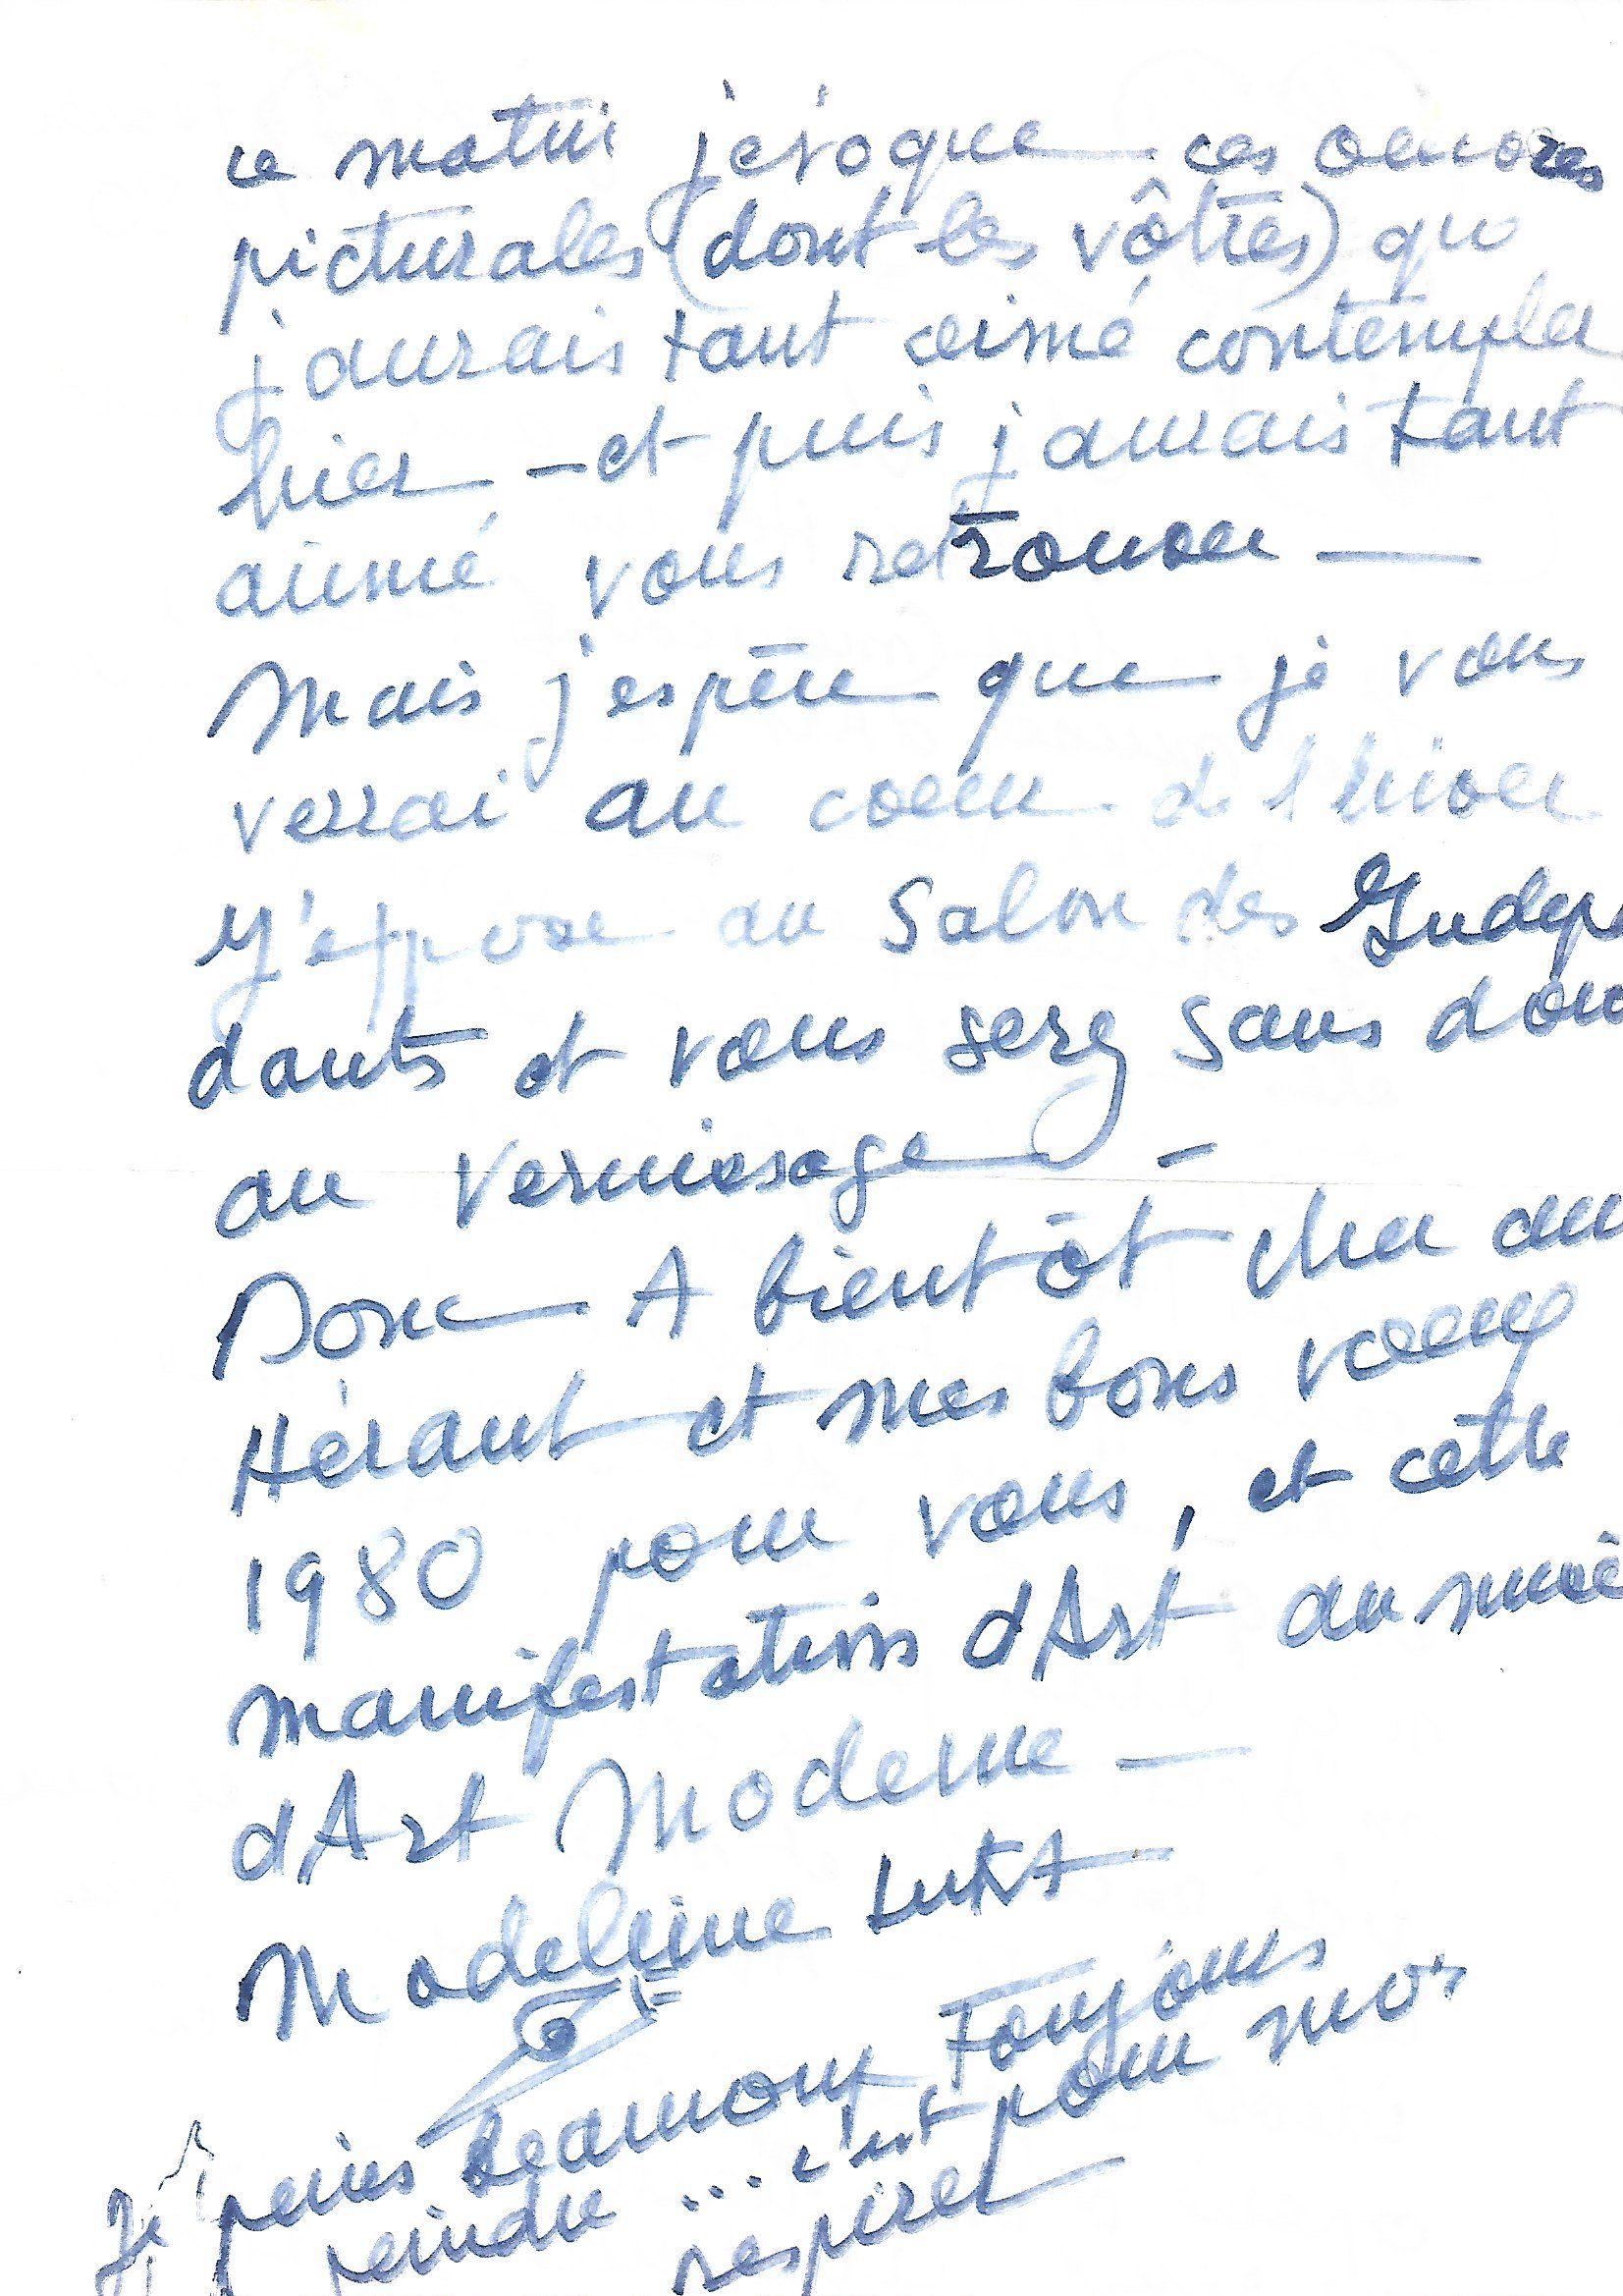 ce matin j'évoque ces oeuvres
picturales (dont les vôtres) que
j'aurais tant aimé contempler
hier - et puis j'aurais tant
aimé vous retrouver —
Mais j'espère que je vous
verrai au coeur de l'hiver
J'expose au Salon des Indepen
dants et vous serez sans dou
au vernissage -
Donc A bientôt cher ami
Héraut et mes bons voeux
1980 pour vous, et cette
manifestation d'Art au musée
d'Art Moderne —
Madeleine LUKA
Je peins beaucoup Toujours
peindre ... c'est pour moi
respirer